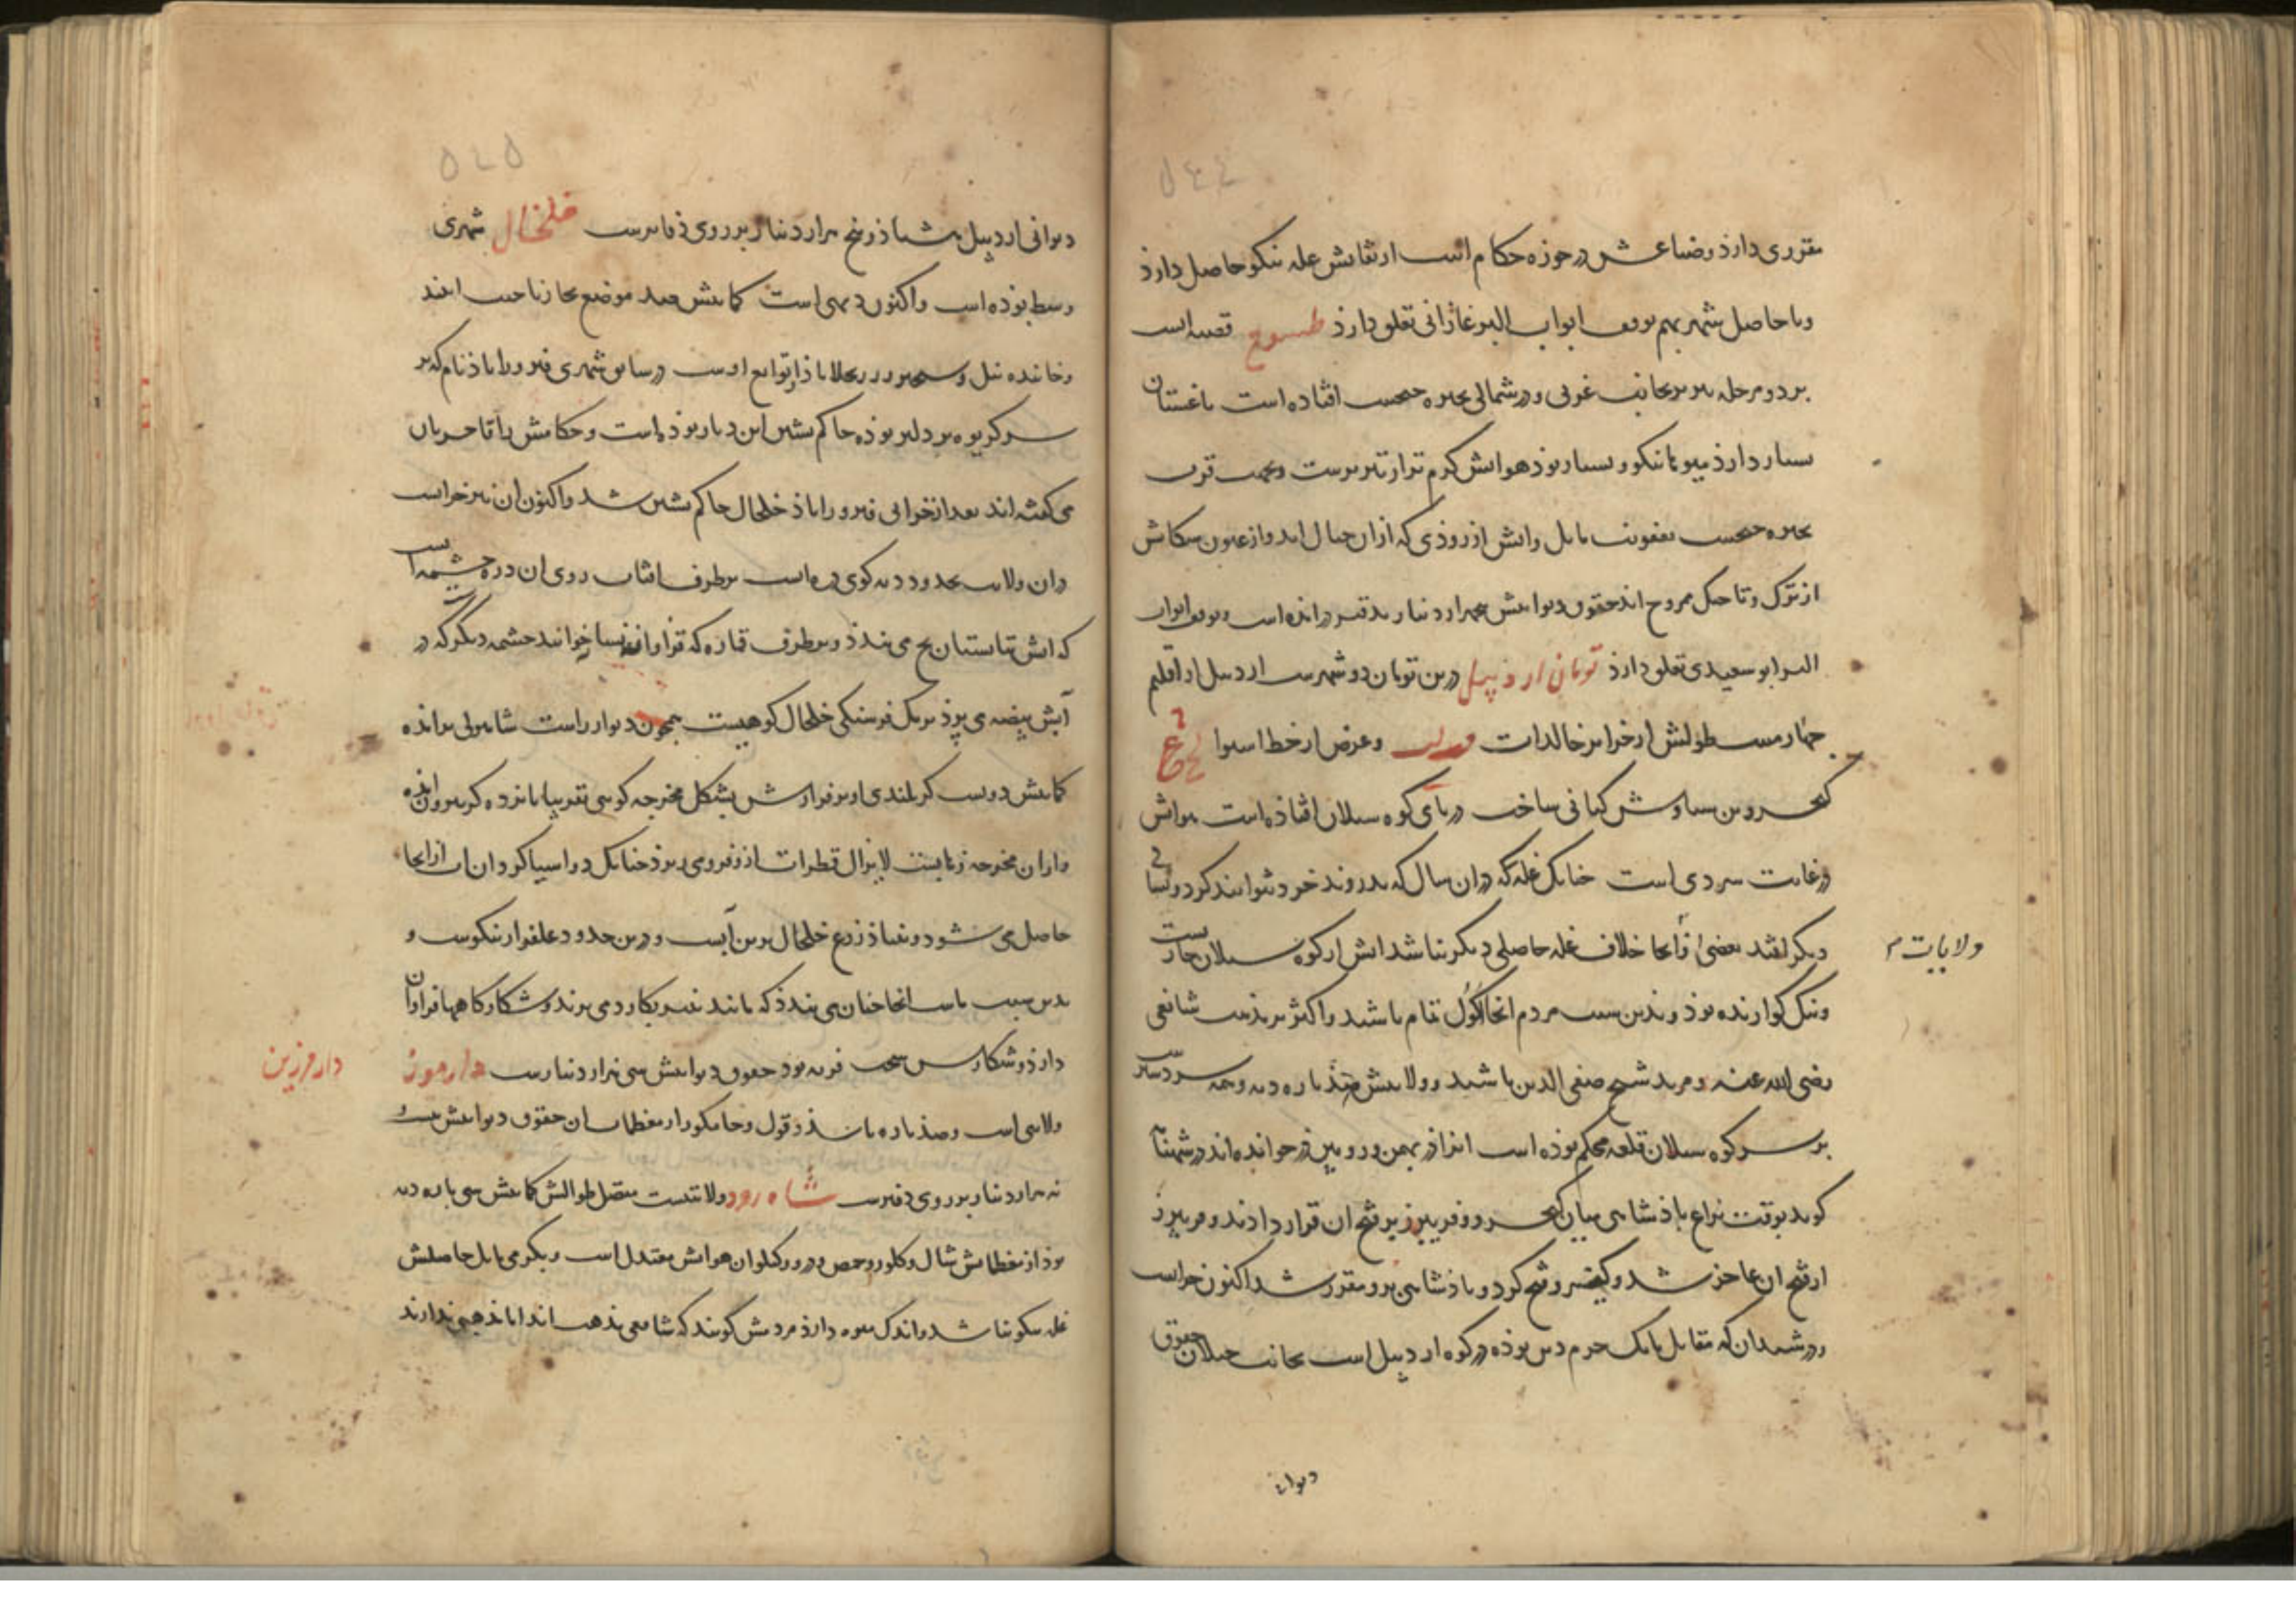 ٥٤٤
مقرری دارد و ضیاعش در حوزه حکام است ارتفاعش غله نیکو حاصل دارد
و با حاصل شهر بهم بوقف ابواب البر غازانی تعلق دارد طسوج قصبه است
بر دو مرحله تبریز بجانب غربی و در شمالی بحیره چیچست افتاده است باغستان
بسیار دارد میوها نیکو و بسیار بود هوایش گرم تر از تبریزست و بجهت قرب
بحیره چیچست بعفونت مایل و آبش از روذی که از آن جبال آید و از عیون سکانش
از ترک و تاجیک ممزوج اند حقوق دیوانیش پنجهزار دینار بدفتر در آمده است و بوقف ابواب
البر ابو سعیدی تعلق دارذ تومان اردبیل درین تومان دو شهرست اردبیل از اقلیم
چهارمست طولش از جزایر خالدات و عرض از خط استوا
کیخسرو بن سیاوش کیانی ساخت در پای کوه سبلان افتاذه است هواش
در غایت سردی است چنانک غله که در آن سال که بدروند خرد نتوانند کرد و بسال
دیگر افتد بعضی از آنجا خلاف غله حاصلی دیگر نباشد آبش از کوه سبلان جاریست
ولایات
و نیک گوارنده بوذ و بدین سبب مردم آنجا اکول تمام باشند و اکثر بر مذهب شافعی
رضی الله عنه و مرید شیخ صفی الدین باشند و ولایتش صد پاره دیه و همه سردسیر
بر سر کوه سبلان قلعه محکم بوذه است آنرا دز بهمن و رویین دز خوانده اند در شهنامه
گوید بوقت نزاع پاذشاهی میان کیخسرو و فریبرز بر فتح آن قرار دادند و فریبرز
از فتح آن عاجز شد و کیخسرو فتح کرد و پاذشاهی برو مقرر شد اکنون خرابست
و در شیدان که مقابل بابک خرم دین بوذه در کوه اردبیل است بجانب جیلان حقوق
دیوانی
٥٤٥
دیوانی اردبیل هشتاذ و پنج هزار دینار بر روی دفترست خلخال شهری
وسط بوذه است و اکنون دیهی است کمابیش صد موضع
سر کریوه بردلیز بوذه حاکم نشین این دیار بوذه است و حکامش را آقاجریان
می گفته اند بعد از خرابی فیروزاباذ خلخال حاکم نشین شد و اکنون آن نیز خرابست
در آن ولایت بحدود دیه کوی است بر طرف آفتاب روی آن دره چشمه است
که آبش تابستان یخ می بندذ و بر طرف خوانند چشمه دیگر که در
آبش بیضه می پزذ بر یک فرسنگی خلخال کوهیست همچون دیوار راست
کمابیش دویست گز بلندی و بر فرازش بشکل مخرجه کوهی تقریبا پانزده گز بیرون آمده
و از آن مخرجه لایزال قطرات فرو می ریزذ چنانک دو آسیا گردان آب از آنجا
حاصل می شود و بنیاذ زرع خلخال برین آبست و درین حدود علفزار نیکوست و
بدین سبب ماست آنجا چنان می بندذ که مانند پنیر بکارد می برند و شکارگاهها فراوان
دارد و شکارش سخت فربه بود حقوق دیوانیش سی هزار دینارست دارمرز
دارمرزین
ولایتی است و صذ پاره باشد حقوق دیوانیش بیست و
نه هزار دینار بر روی دفترست شاه رود ولایتیست متصل طوالش کمابیش سی پاره دیه
بوذ از معظماتش شال و کلور و حمص و درود و کیلوان هوایش معتدل است و بگرمی مایل حاصلش
غله نیکو نباشد و اندک میوه دارد مردمش گویند که شافعی مذهب اند اما مذهبی ندارند